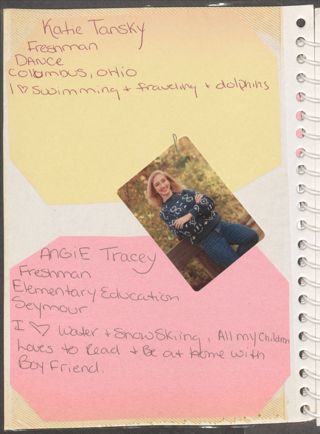 Katie Tansky
Freshman
DANCE
Columbus, OHio
I ♡ Swimming + traveling + dolphins
ANGiE Tracey
Freshman
Elementary Education
Seymour
I ♡ Water + Snow Skiing, All my Children
Loves to Read + Be at Home with
Boy Friend.